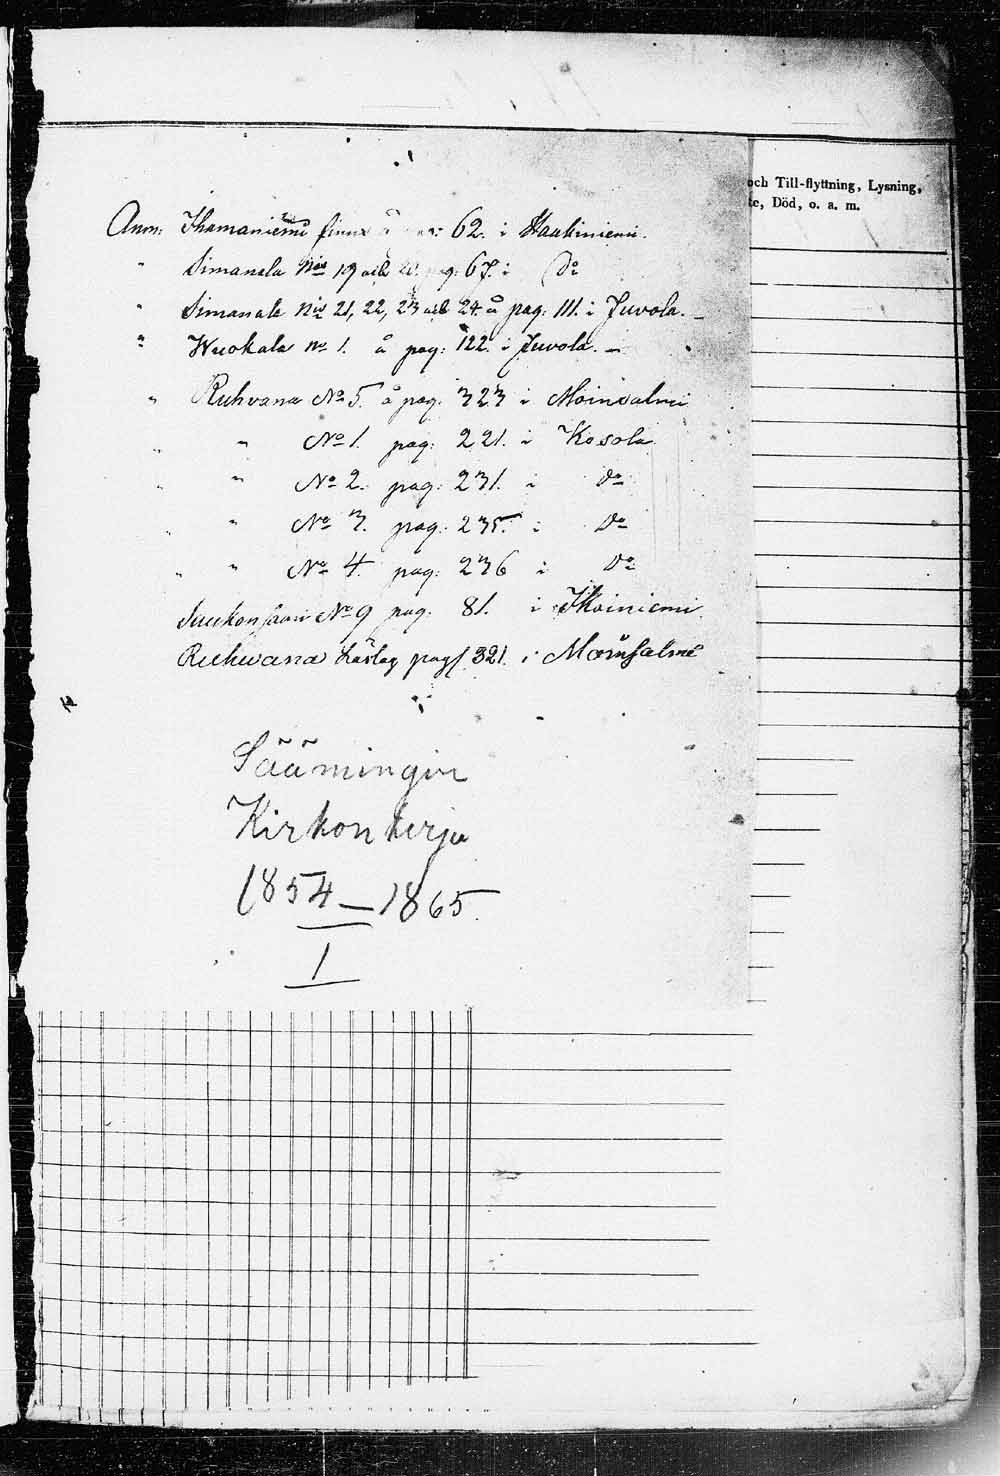 och Till-flyttning, Lysning,
te, Död, o. a. m.
Anm: Ihamaniemi finnes å 62. i Haukiniemi.
" Simanala Nris 19 och pag: 67. i Do
" Simanala Nris 21, 22, 23 och 24. å pag: 111. i Juvola.
" Wuokala No 1. å pag: 122. i Juvola. —
" Ruhvana No 5. å pag. 323 i Moinsalmi
" " No 1. pag: 221. i Kosola
" " No 2. pag: 231. i Do
" No 3. pag. 235. i Do
" " No 4. pag: 236 i Do
saari No 9 pag. 81. i
Ruhvana Läslag pag 321. i Moinsalmi
Säämingin
Kirkonkirja
1854—1865.
1